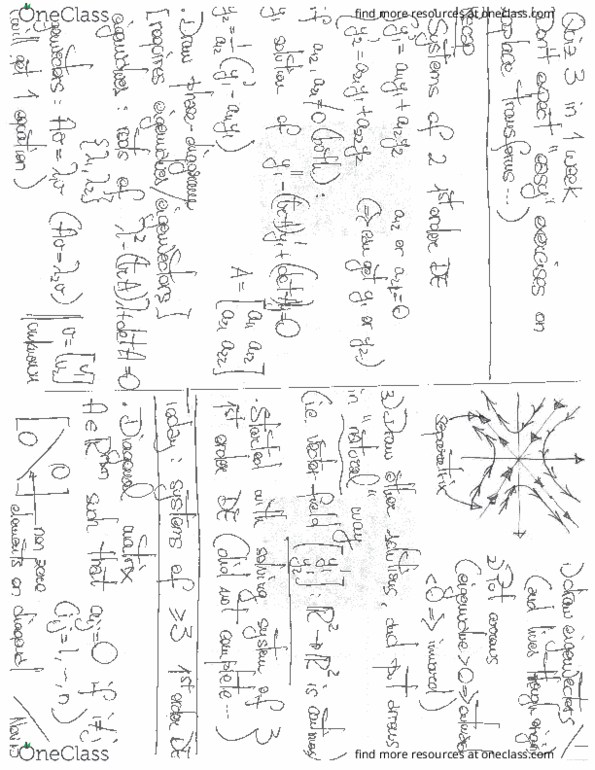 OneClass
find more resources at oneclass.com
Quiz 3 in 1 week
Don't expect "easy" exercises on
Laplace transforms...)
Recap
Systems of 2 1st order DE
y₁' = a₁₁y₁ + a₁₂y₂
y₂' = a₂₁y₁ + a₂₂y₂
a₁₂ or a₂₁ = 0
(⇒ can get y₁ or y₂)
if a₁₂, a₂₁ ≠ 0 (both):
y₁ solution of y₁'' - (trA)y₁' + (det A)y₁ = 0
y₂ = 1/a₁₂ (y₁' - a₁₁y₁)
A = [a₁₁ a₁₂
a₂₁ a₂₂]
. Draw phase-diagram
[requires eigenvalues/eigenvectors]
eigenvalues: roots of λ² - (trA)λ + det A = 0
{λ₁, λ₂}
eigenvectors: Av = λ₁v (Av = λ₂v)
(will get 1 equation)
unknown
1) draw eigenvectors
(and lines through origin)
2) Put arrows
(eigenvalue > 0 ⇒ outward
< 0 ⇒ inward)
separatrix
3) Draw other solutions, and put arrows
in "natural" way
(i.e. vector-field [y₁' y₂']: R² → R² is continuous)
. Started with solving system of 3
1st order DE (did not complete...)
Today: systems of ≥ 3 1st order DE
. Diagonal matrix
A ∈ Rⁿˣⁿ such that aᵢⱼ = 0 if i ≠ j
(i,j = 1, ..., n)
[0 0]
non zero
elements on diagonal
OneClass
find more resources at oneclass.com